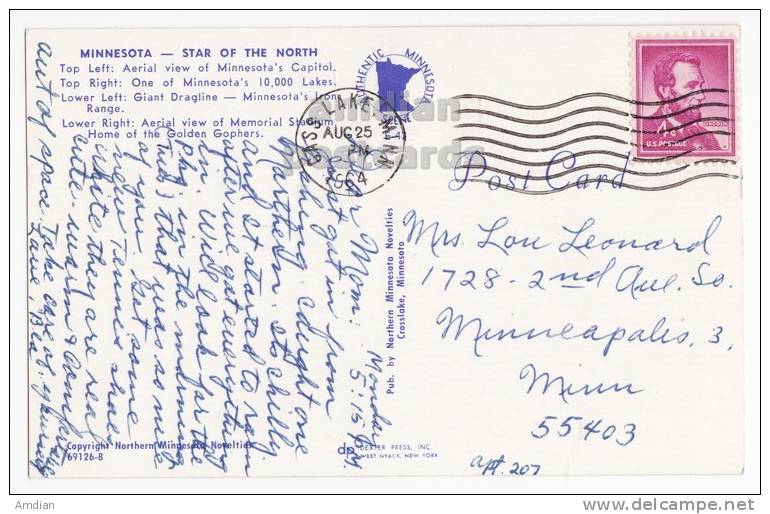 MINNESOTA — STAR OF THE NORTH
Top Left: Aerial view of Minnesota's Capitol.
Top Right: One of Minnesota's 10,000 Lakes.
Lower Left: Giant Dragline — Minnesota's Iron
Range.
Lower Right: Aerial view of Memorial Stadium
Home of the Golden Gophers.
AUTHENTIC MINNESOTA
SCENE
CASS LAKE, MINN
AUG 25
PM
1964
4¢
U.S. POSTAGE
LINCOLN
Amdian
postcards
Post Card
Monday
5:15 P.M.
Dear Mom:
Just got in from
fishing. Caught one
Northern. It's chilly
and it started to rain
after we got everything
in. Will look for the
pkg. in the mail (
Tues) that was so nice
of you. Got some
new Tennis shoes
while they are real
cute, warm & comfort
out of space. Take care of yourself
Love, Bea
Mrs. Lou Leonard
1728 - 2nd Ave. So.
Minneapolis, 3,
Minn
55403
apt. 207
Pub. by Northern Minnesota Novelties
Crosslake, Minnesota
Copyright Northern Minnesota Novelties
69126-B
dp DEXTER PRESS, INC.
WEST NYACK, NEW YORK
Amdian
delcampe.net